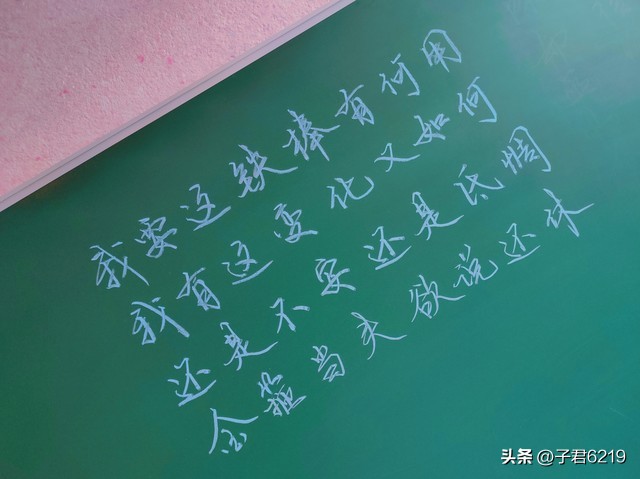 我要这铁棒有何用
我有这变化又如何
还是不安还是氐惆
金箍当头欲说还休
头条 @子君6219